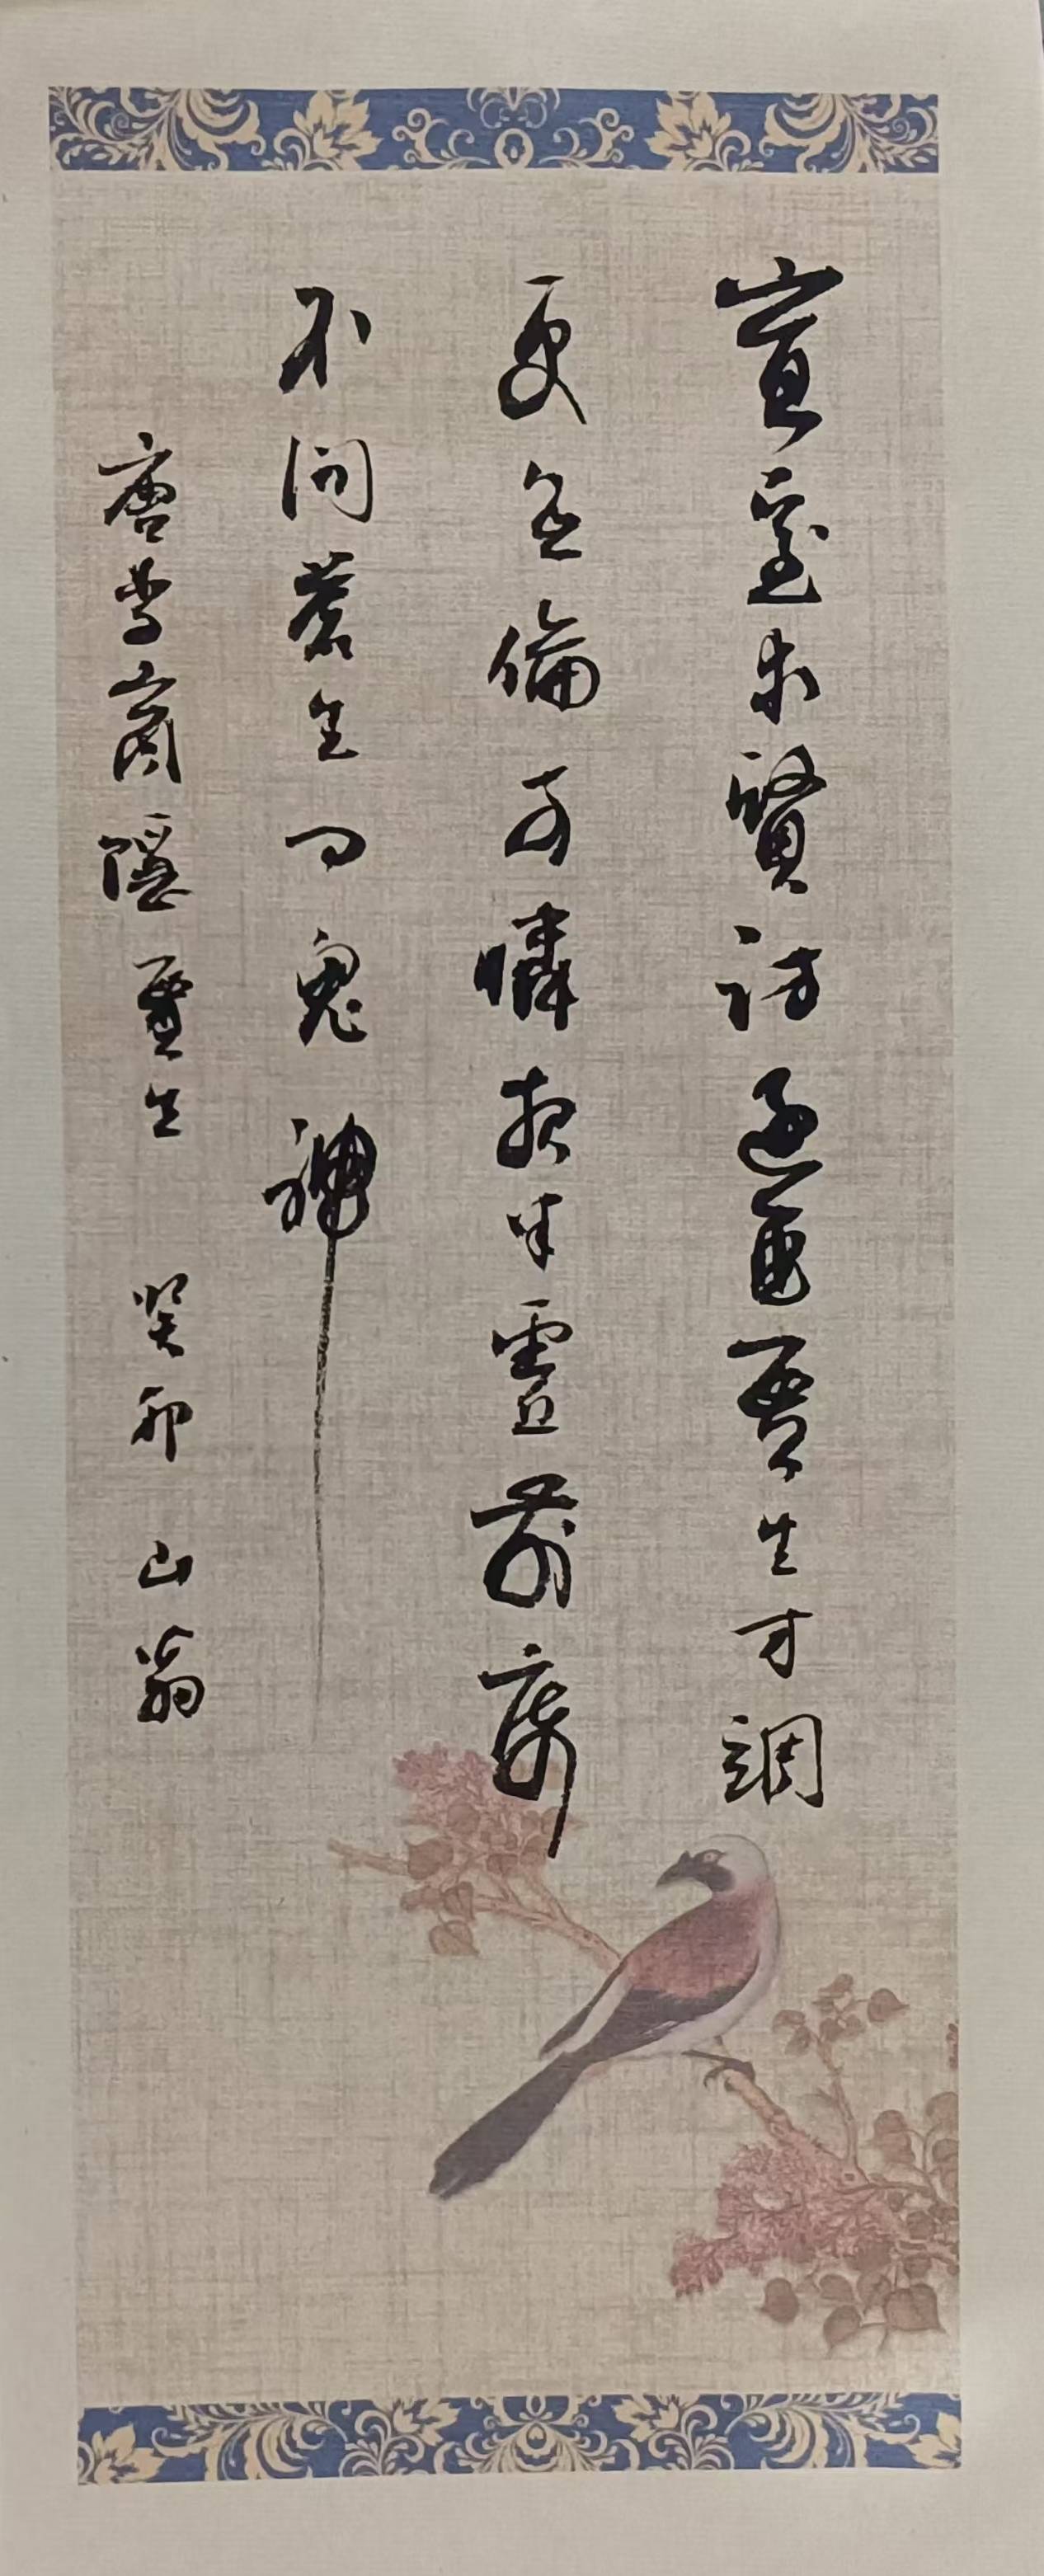 宣室求賢訪逐臣賈生才調
更無倫可憐夜半虛前席
不問蒼生問鬼神
唐李商隱賈生 癸卯 山翁